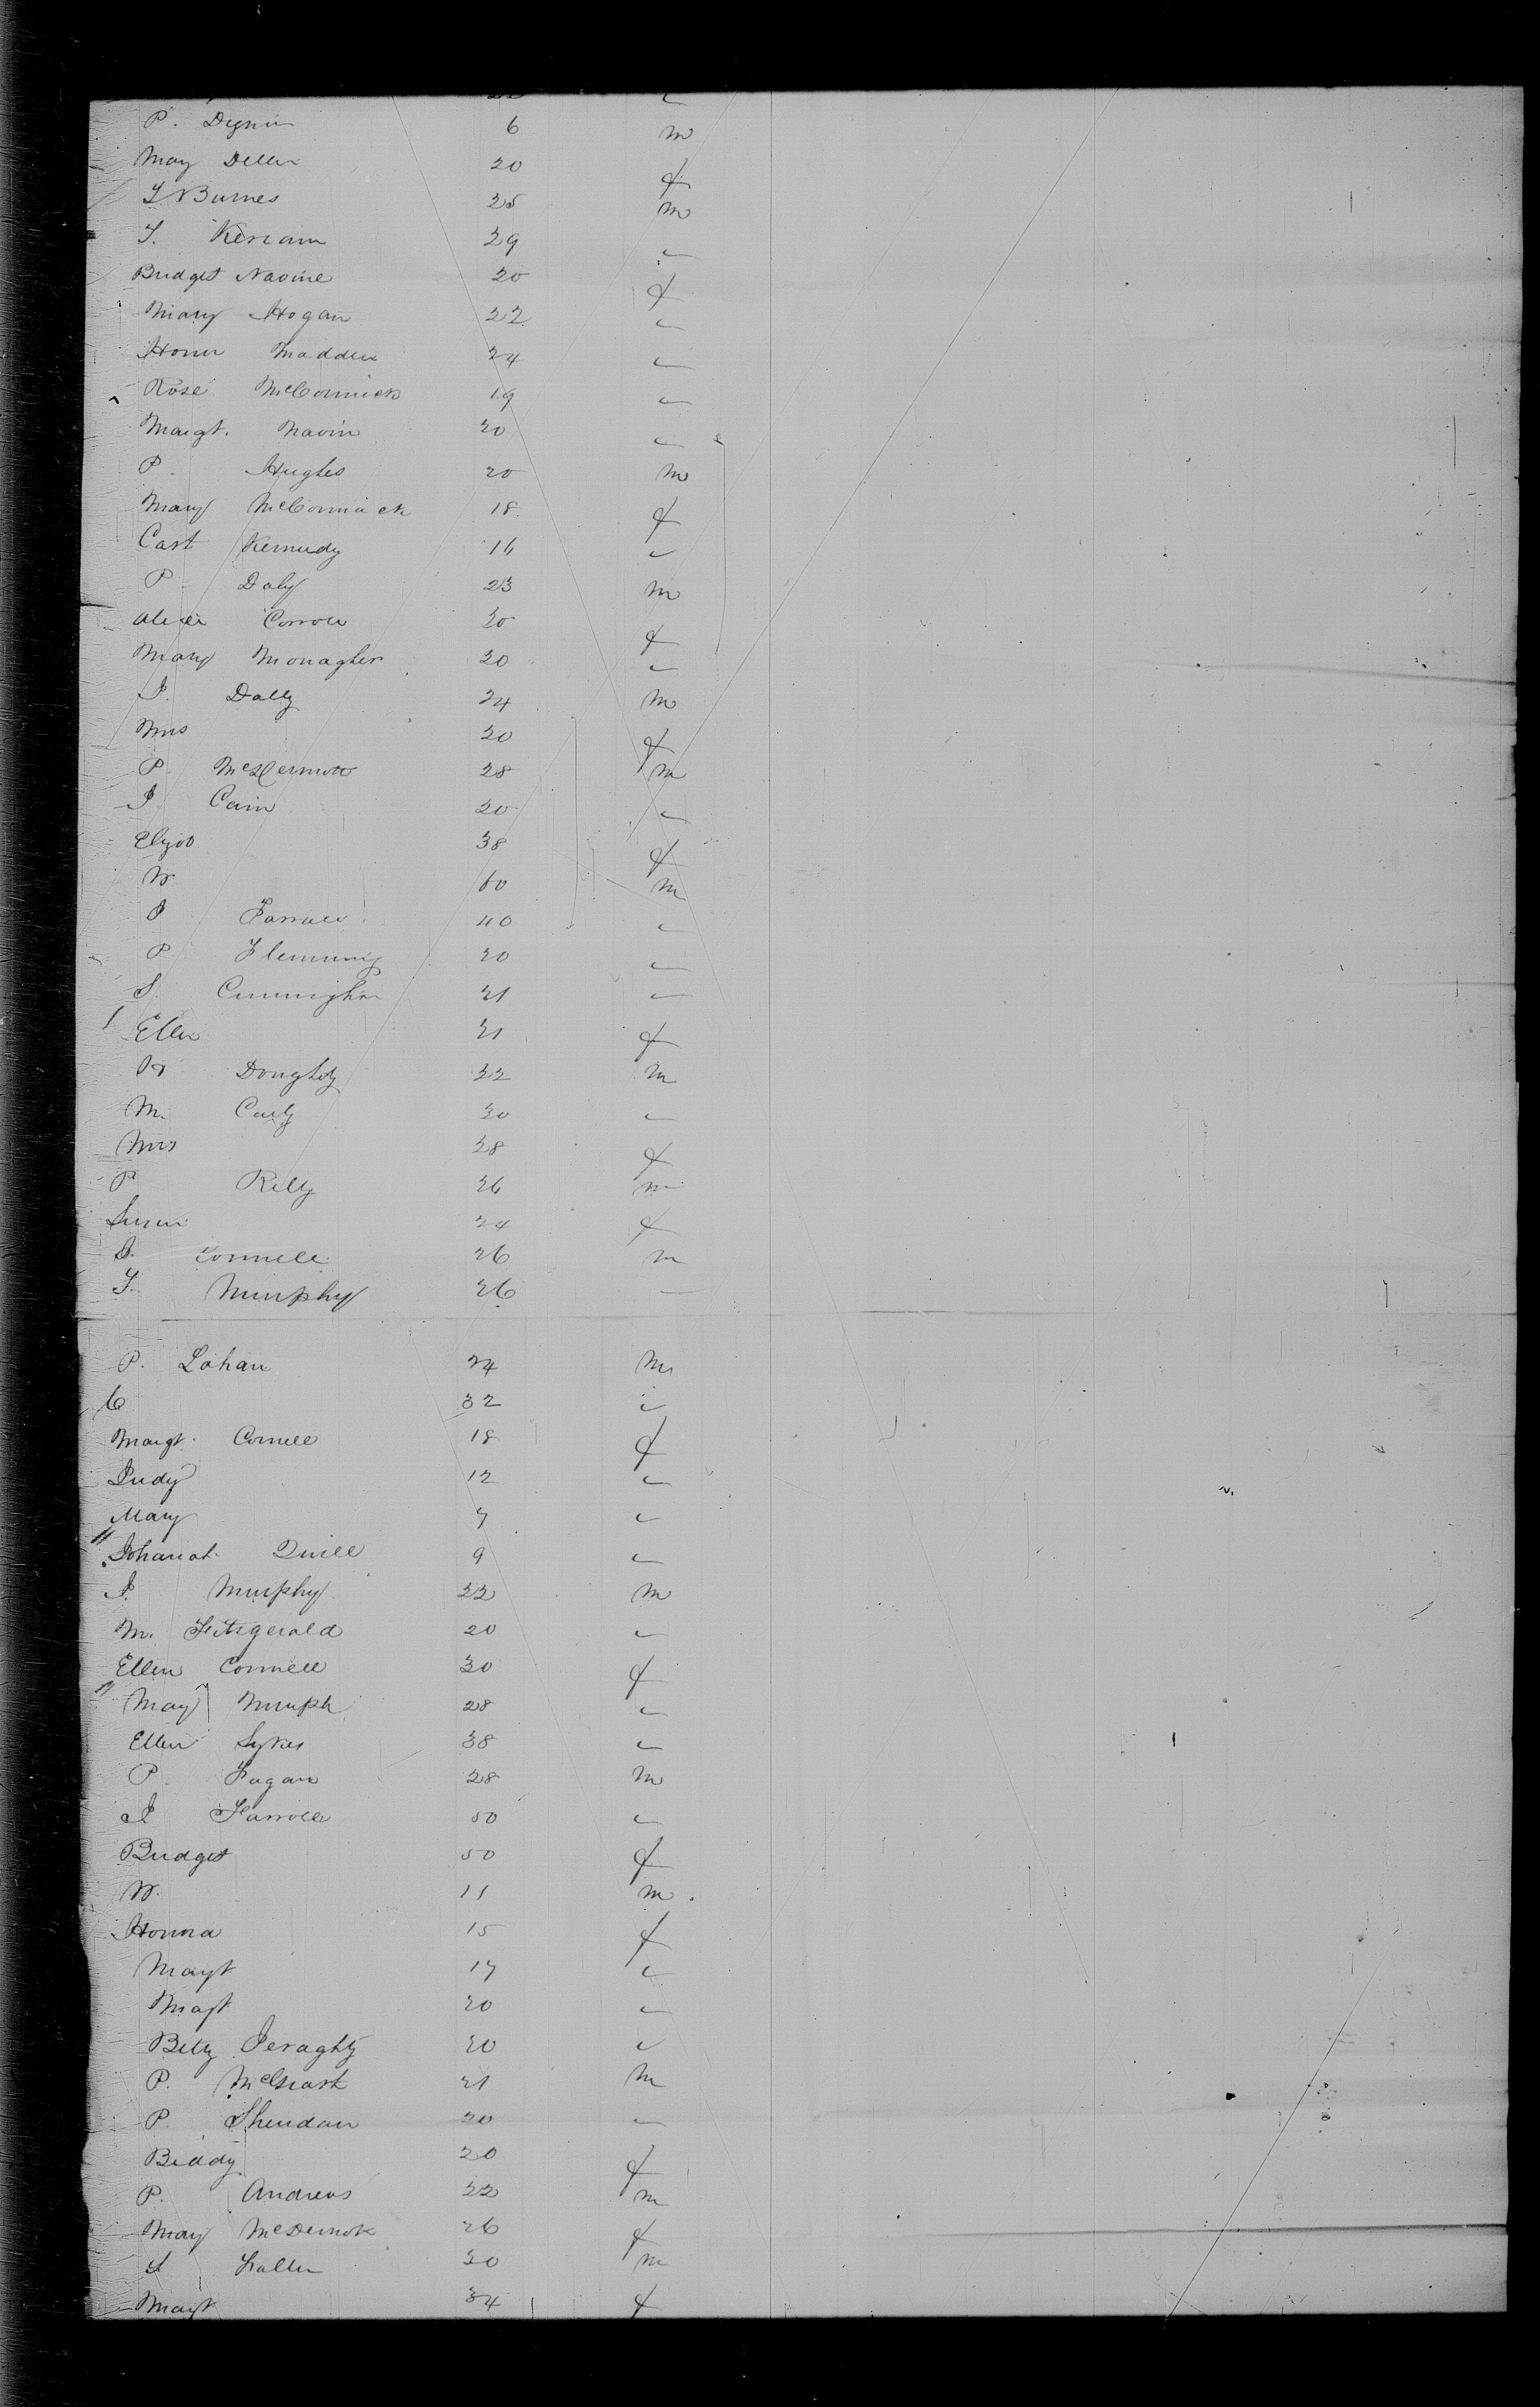 P. Dignin 6 m
May Dillin 20 f
T Burnes 25 m
T. Kerram 29 "
Bridget Navine 20 f
Mary Hogan 22 "
Honor Madden 24 "
Rose McCormick 19 "
Margt. Navin 20 "
P. Hughes 20 m
Mary McCormick 18 f
Cart Kennedy 16 "
P Daly 23 m
Alice Corroll 30 f
Mary Monagher 20 "
J. Dally 24 m
Mrs 20 f
P McDermott 28 m
J Cain 20 "
38 f
W 60 m
J Farrall 40 "
P Flemming 20 "
S. Cunningham 21 "
Ellen 21 f
Doughty 22 m
M. Carty 30 "
Mrs 28 f
P Rilly 26 m
Susan 24 f
Connell 26 m
T. Murphy 26 "
P. Lohan 24 m
C 32 "
Margt. Connell 18 f
Judy 12 "
Mary 7 "
Johanah Quill 9 "
J. Murphy 22 m
M. Fitzgerald 20 "
Ellen Connell 30 f
May Murph 28 "
Ellen Sykes 38 "
P Fagan 28 m
J Farroll 50 "
Bridget 50 f
W. 11 m
Honna 15 f
Mayt 17 "
Mast 20 "
Betty Jeraghty 20 "
P. McGrath 21 m
P. Sheridan 20 "
Biddy 20 f
P. Andrews 22 m
May McDermott 26 f
Fallen 30 m
Mayt 34 f